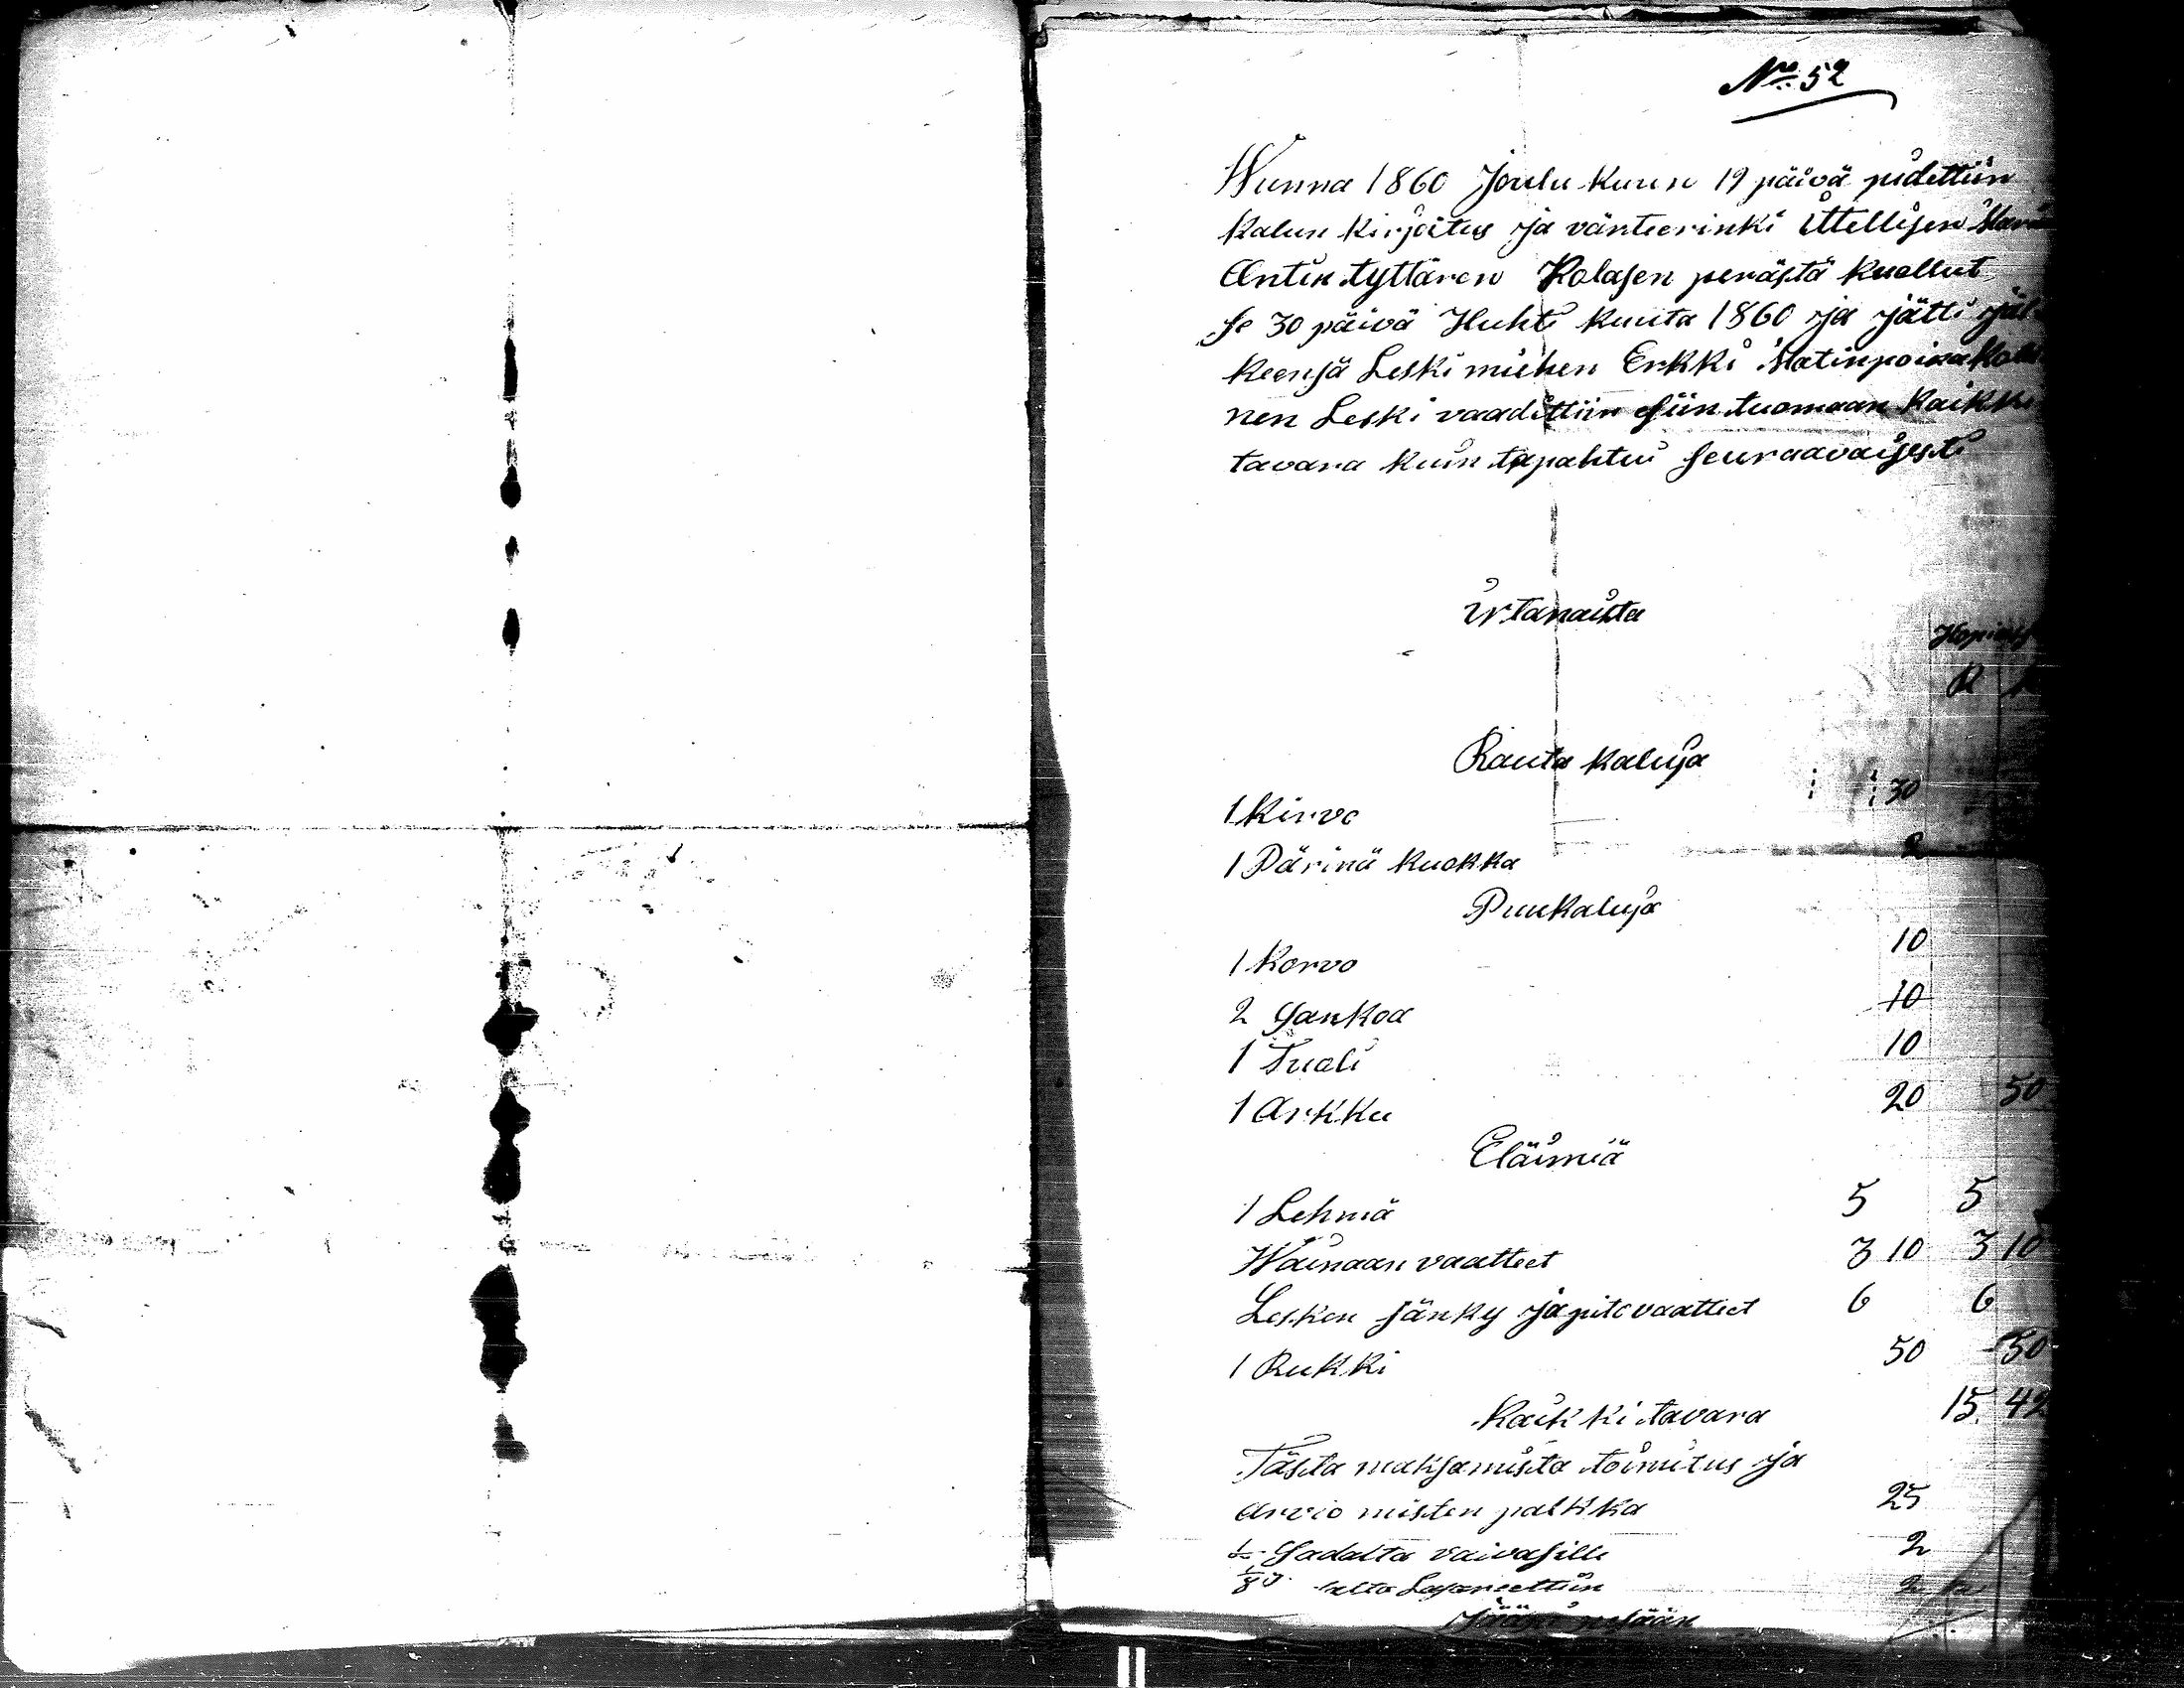 No 52
Wunna 1860 Joulu kuun 19 päivä pidettiin
kalun kirjoitus ja vänteerinki ittellisen
Antin tyttären Kolasen perästä kuollut
se 30 päivä Huhti kuuta 1860 ja jätti
keensä Leski miehen Erkki Matinpoika
nen Leski vaadittiin esiin tuomaan kaikki
tavara kuin tapahtui seuraavaisesti
irtanaista
R
Rauta kaluja
1 Kirve 30
1 Pärinä kuokka 2
Puukaluja
1 Korvo 10
2 Sankoa 10
1 Tuali 10
1 Arkku 20 50
Eläimiä
1 Lehmä 5 5
Wainaan vaatteet 3 10 3 10
Lesken sänky ja pito vaatteet 6 6
1 Rukki 50 50
kaikki tavara 15 42
Tästä maksamista toimitus ja
arvio miesten palkka 25
Sadalta vaivasille 2
1/8 Lasareettiin 2
Jääpi pesään